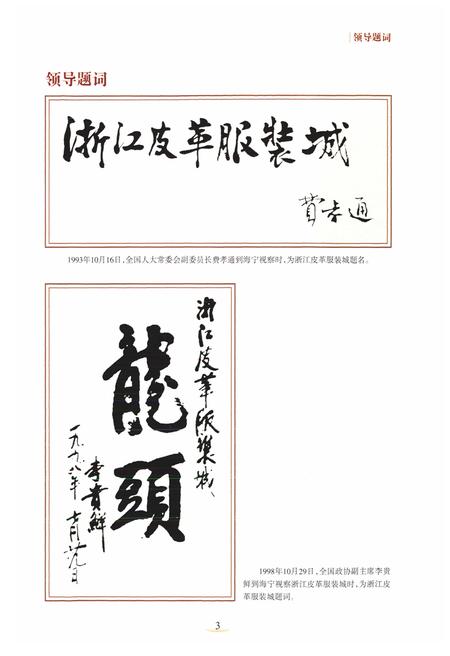 领导题词
领导题词
浙江皮革服裝城
費孝通
1993年10月16日,全国人大常委会副委员长费孝通到海宁视察时,为浙江皮革服装城题名。
浙江皮革服裝城
龍頭
李貴鮮
一九九八年十月廿九日
1998年10月29日,全国政协副主席李贵
鲜到海宁视察浙江皮革服装城时,为浙江皮
革服装城题词。
3